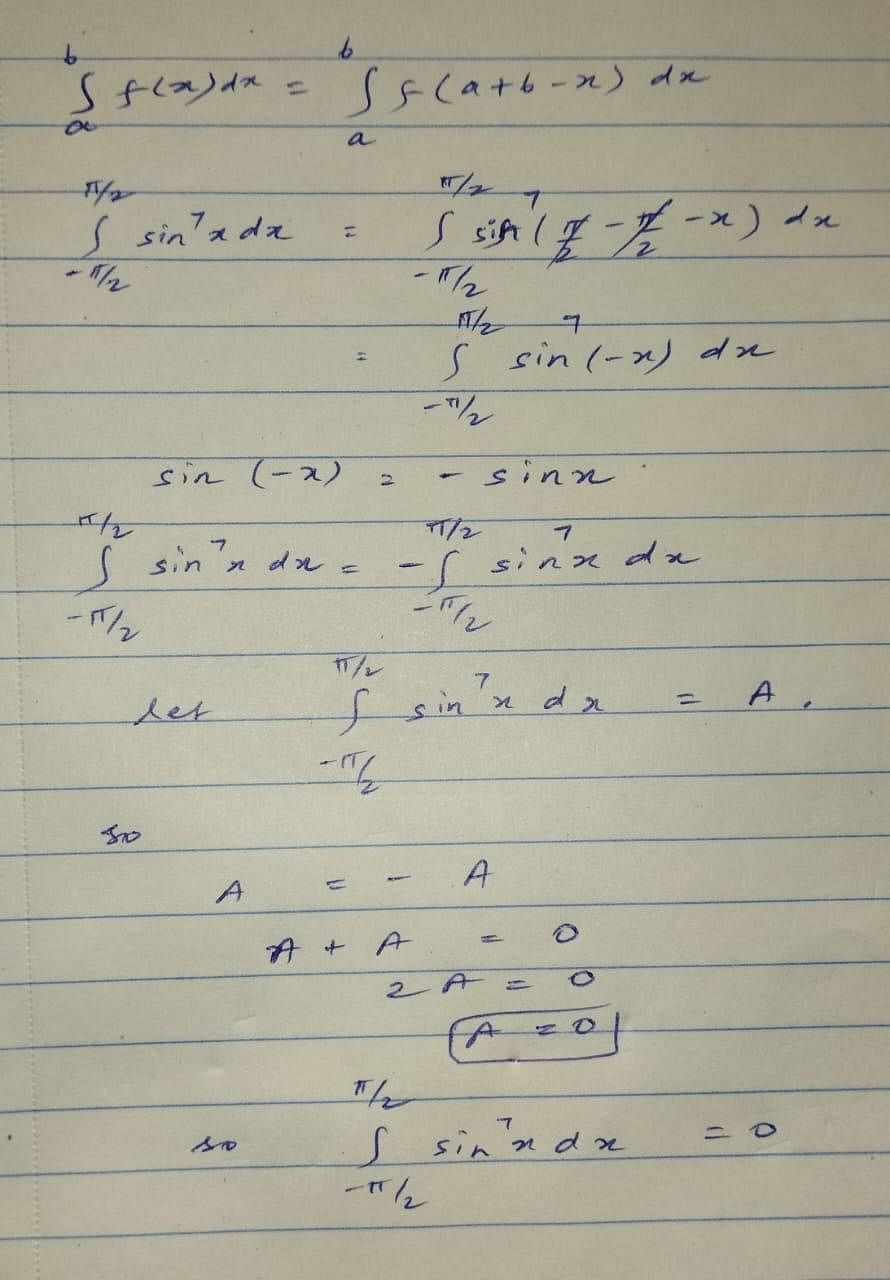 ∫_a^b f(x)dx = ∫_a^b f(a+b-x) dx
∫_{-π/2}^{π/2} sin⁷x dx = ∫_{-π/2}^{π/2} sin⁷(π/2 - π/2 - x) dx
= ∫_{-π/2}^{π/2} sin⁷(-x) dx
sin (-x) = - sinx
∫_{-π/2}^{π/2} sin⁷x dx = -∫_{-π/2}^{π/2} sin⁷x dx
let ∫_{-π/2}^{π/2} sin⁷x dx = A.
so
A = - A
A + A = 0
2A = 0
A = 0
so ∫_{-π/2}^{π/2} sin⁷x dx = 0